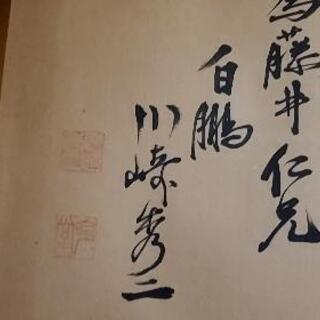 為藤井仁兄
白鵬
川崎秀二